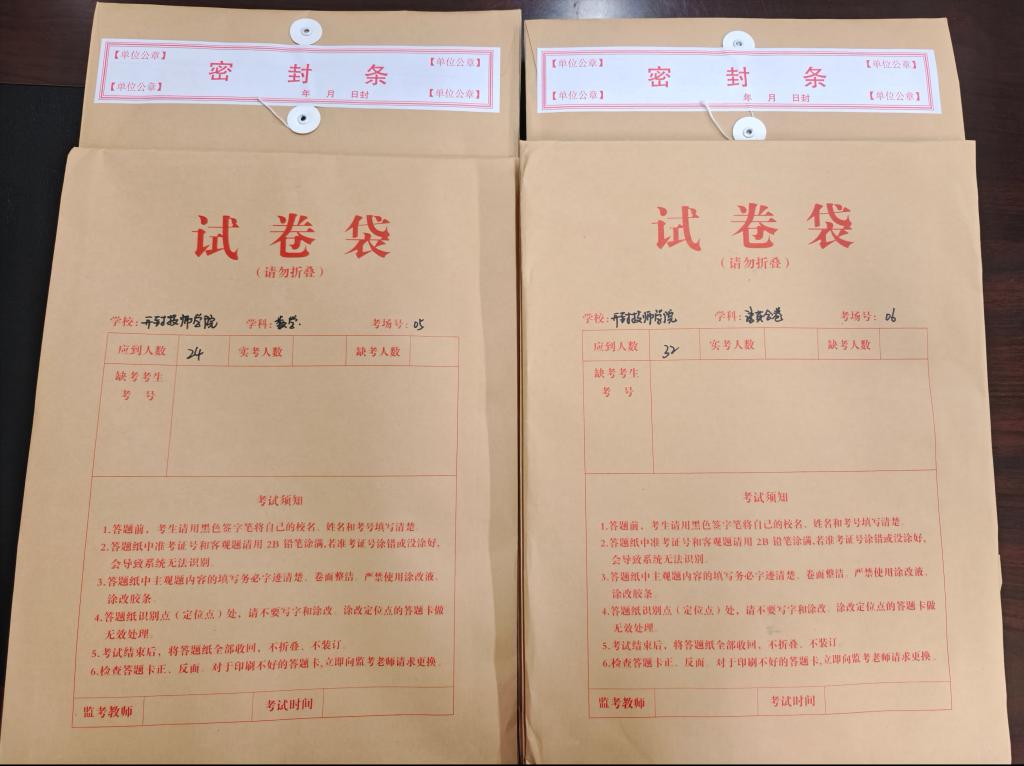 【单位公章】 【单位公章】
密 封 条
【单位公章】 年 月 日封 【单位公章】
试 卷 袋
（请勿折叠）
学校：开封技师学院 学科：数学. 考场号：05
应到人数 24 实考人数 缺考人数
缺考考生
考 号
考试须知
1.答题前，考生请用黑色签字笔将自己的校名、姓名和考号填写清楚。
2.答题纸中准考证号和客观题请用 2B 铅笔涂满,若准考证号涂错或没涂好,
会导致系统无法识别。
3.答题纸中主观题内容的填写务必字迹清楚、卷面整洁。严禁使用涂改液、
涂改胶条。
4.答题纸识别点（定位点）处，请不要写字和涂改。涂改定位点的答题卡做
无效处理。
5.考试结束后，将答题纸全部收回，不折叠、不装订。
6.检查答题卡正、反面。对于印刷不好的答题卡,立即向监考老师请求更换。
监考教师 考试时间
【单位公章】 【单位公章】
密 封 条
【单位公章】 年 月 日封 【单位公章】
试 卷 袋
（请勿折叠）
学校：开封技师学院 学科： 考场号：06
应到人数 32 实考人数 缺考人数
缺考考生
考 号
考试须知
1.答题前，考生请用黑色签字笔将自己的校名、姓名和考号填写清楚。
2.答题纸中准考证号和客观题请用 2B 铅笔涂满,若准考证号涂错或没涂好,
会导致系统无法识别。
3.答题纸中主观题内容的填写务必字迹清楚、卷面整洁。严禁使用涂改液、
涂改胶条。
4.答题纸识别点（定位点）处，请不要写字和涂改。涂改定位点的答题卡做
无效处理。
5.考试结束后，将答题纸全部收回，不折叠、不装订。
6.检查答题卡正、反面。对于印刷不好的答题卡,立即向监考老师请求更换。
监考教师 考试时间